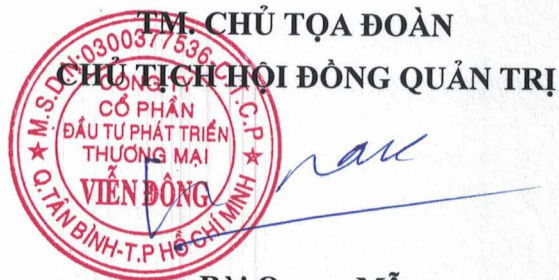 TM. CHỦ TỌA ĐOÀN
CHỦ TỊCH HỘI ĐỒNG QUẢN TRỊ
M.S.D.N:0300377536-C.T.C.P
CÔNG TY
CỔ PHẦN
ĐẦU TƯ PHÁT TRIỂN
THƯƠNG MẠI
VIỄN ĐÔNG
Q.TÂN BÌNH-T.P HỒ CHÍ MINH